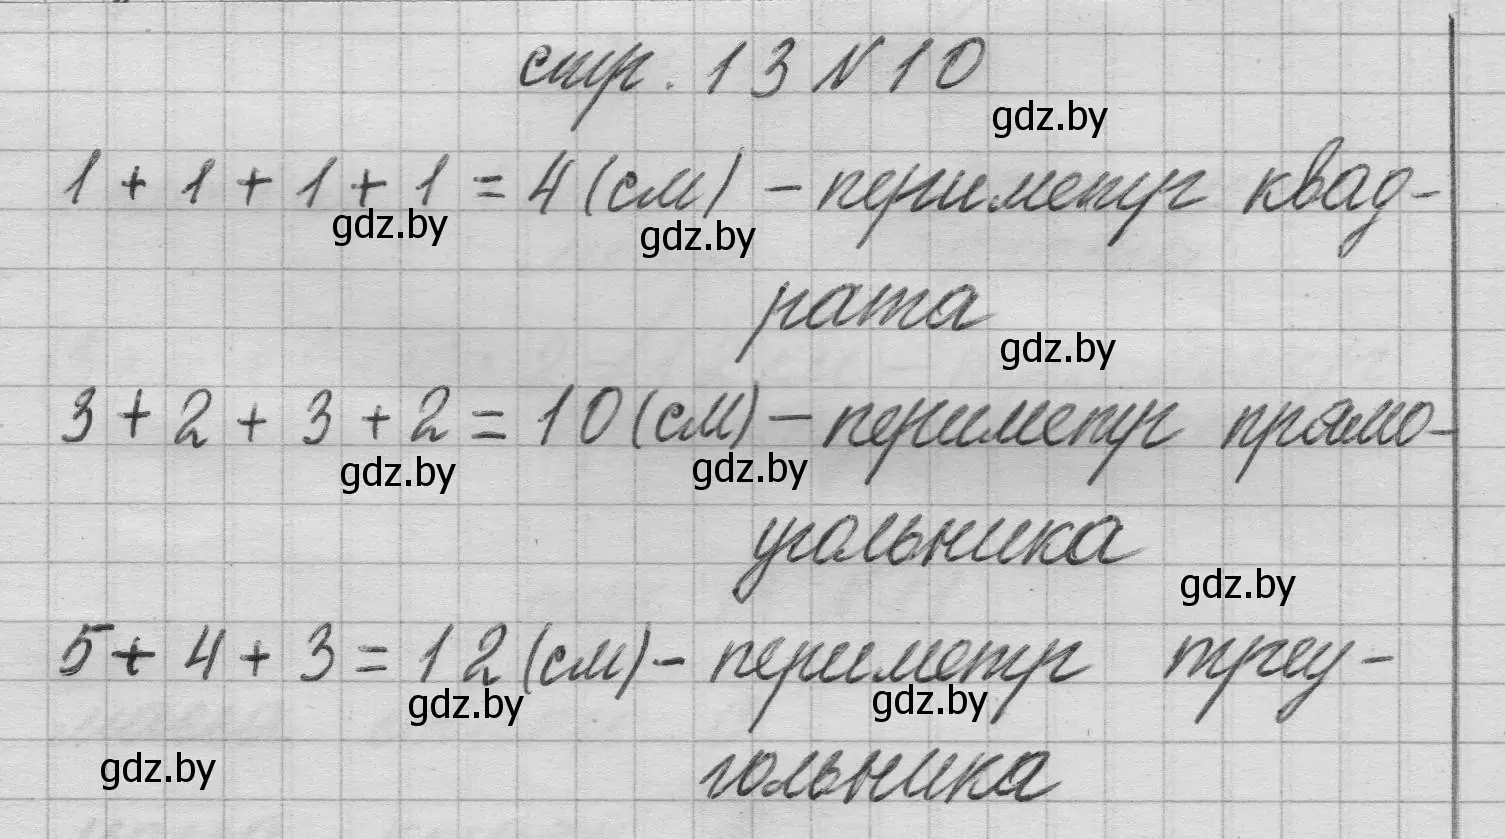 стр. 13 N 10
gdz.by
1 + 1 + 1 + 1 = 4 (см) – периметр квад-
gdz.by gdz.by
рата
gdz.by
3 + 2 + 3 + 2 = 10 (см) – периметр прямо-
gdz.by gdz.by
угольника
gdz.by
5 + 4 + 3 = 12 (см) – периметр треу-
gdz.by gdz.by
гольника
gdz.by